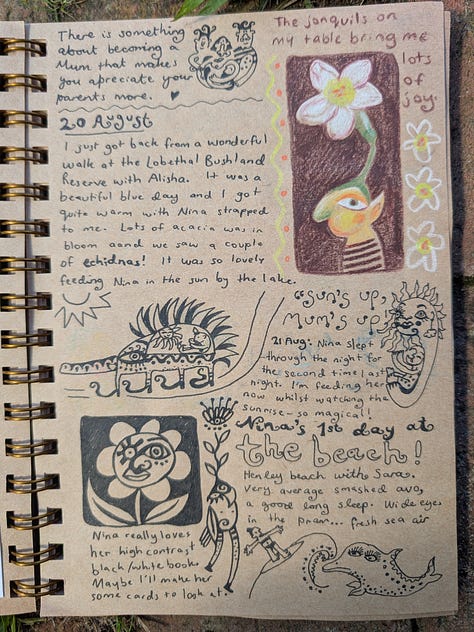 There is something
about becoming a
Mum that makes
you apreciate your
parents more. ♥
The jonquils on
my table bring me
lots
of
joy.
20 August
I just got back from a wonderful
walk at the Lobethal Bushland
Reserve with Alisha. It was a
beautiful blue day and I got
quite warm with Nina strapped
to me. Lots of acacia was in
bloom aand we saw a couple
of echidnas! It was so lovely
feeding Nina in the sun by the lake.
"Sun's up,
Mum's up"
21 Aug. Nina slept
through the night for
the second time last
night. I'm feeding her
now whilst watching the
sunrise - so magical!
Nina's 1st day at
the beach!
Henley beach with Sara.
Very average smashed avo,
a good long sleep. Wide eyes
in the pram... fresh sea air
Nina really loves
her high contrast
black/white books
Maybe I'll make her
some cards to look at